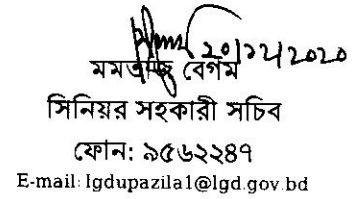 20/12/2020
মমতাজ বেগম
সিনিয়র সহকারী সচিব
ফোন: ৯৫৬২২৪৭
E-mail: lgdupazila1@lgd.gov.bd